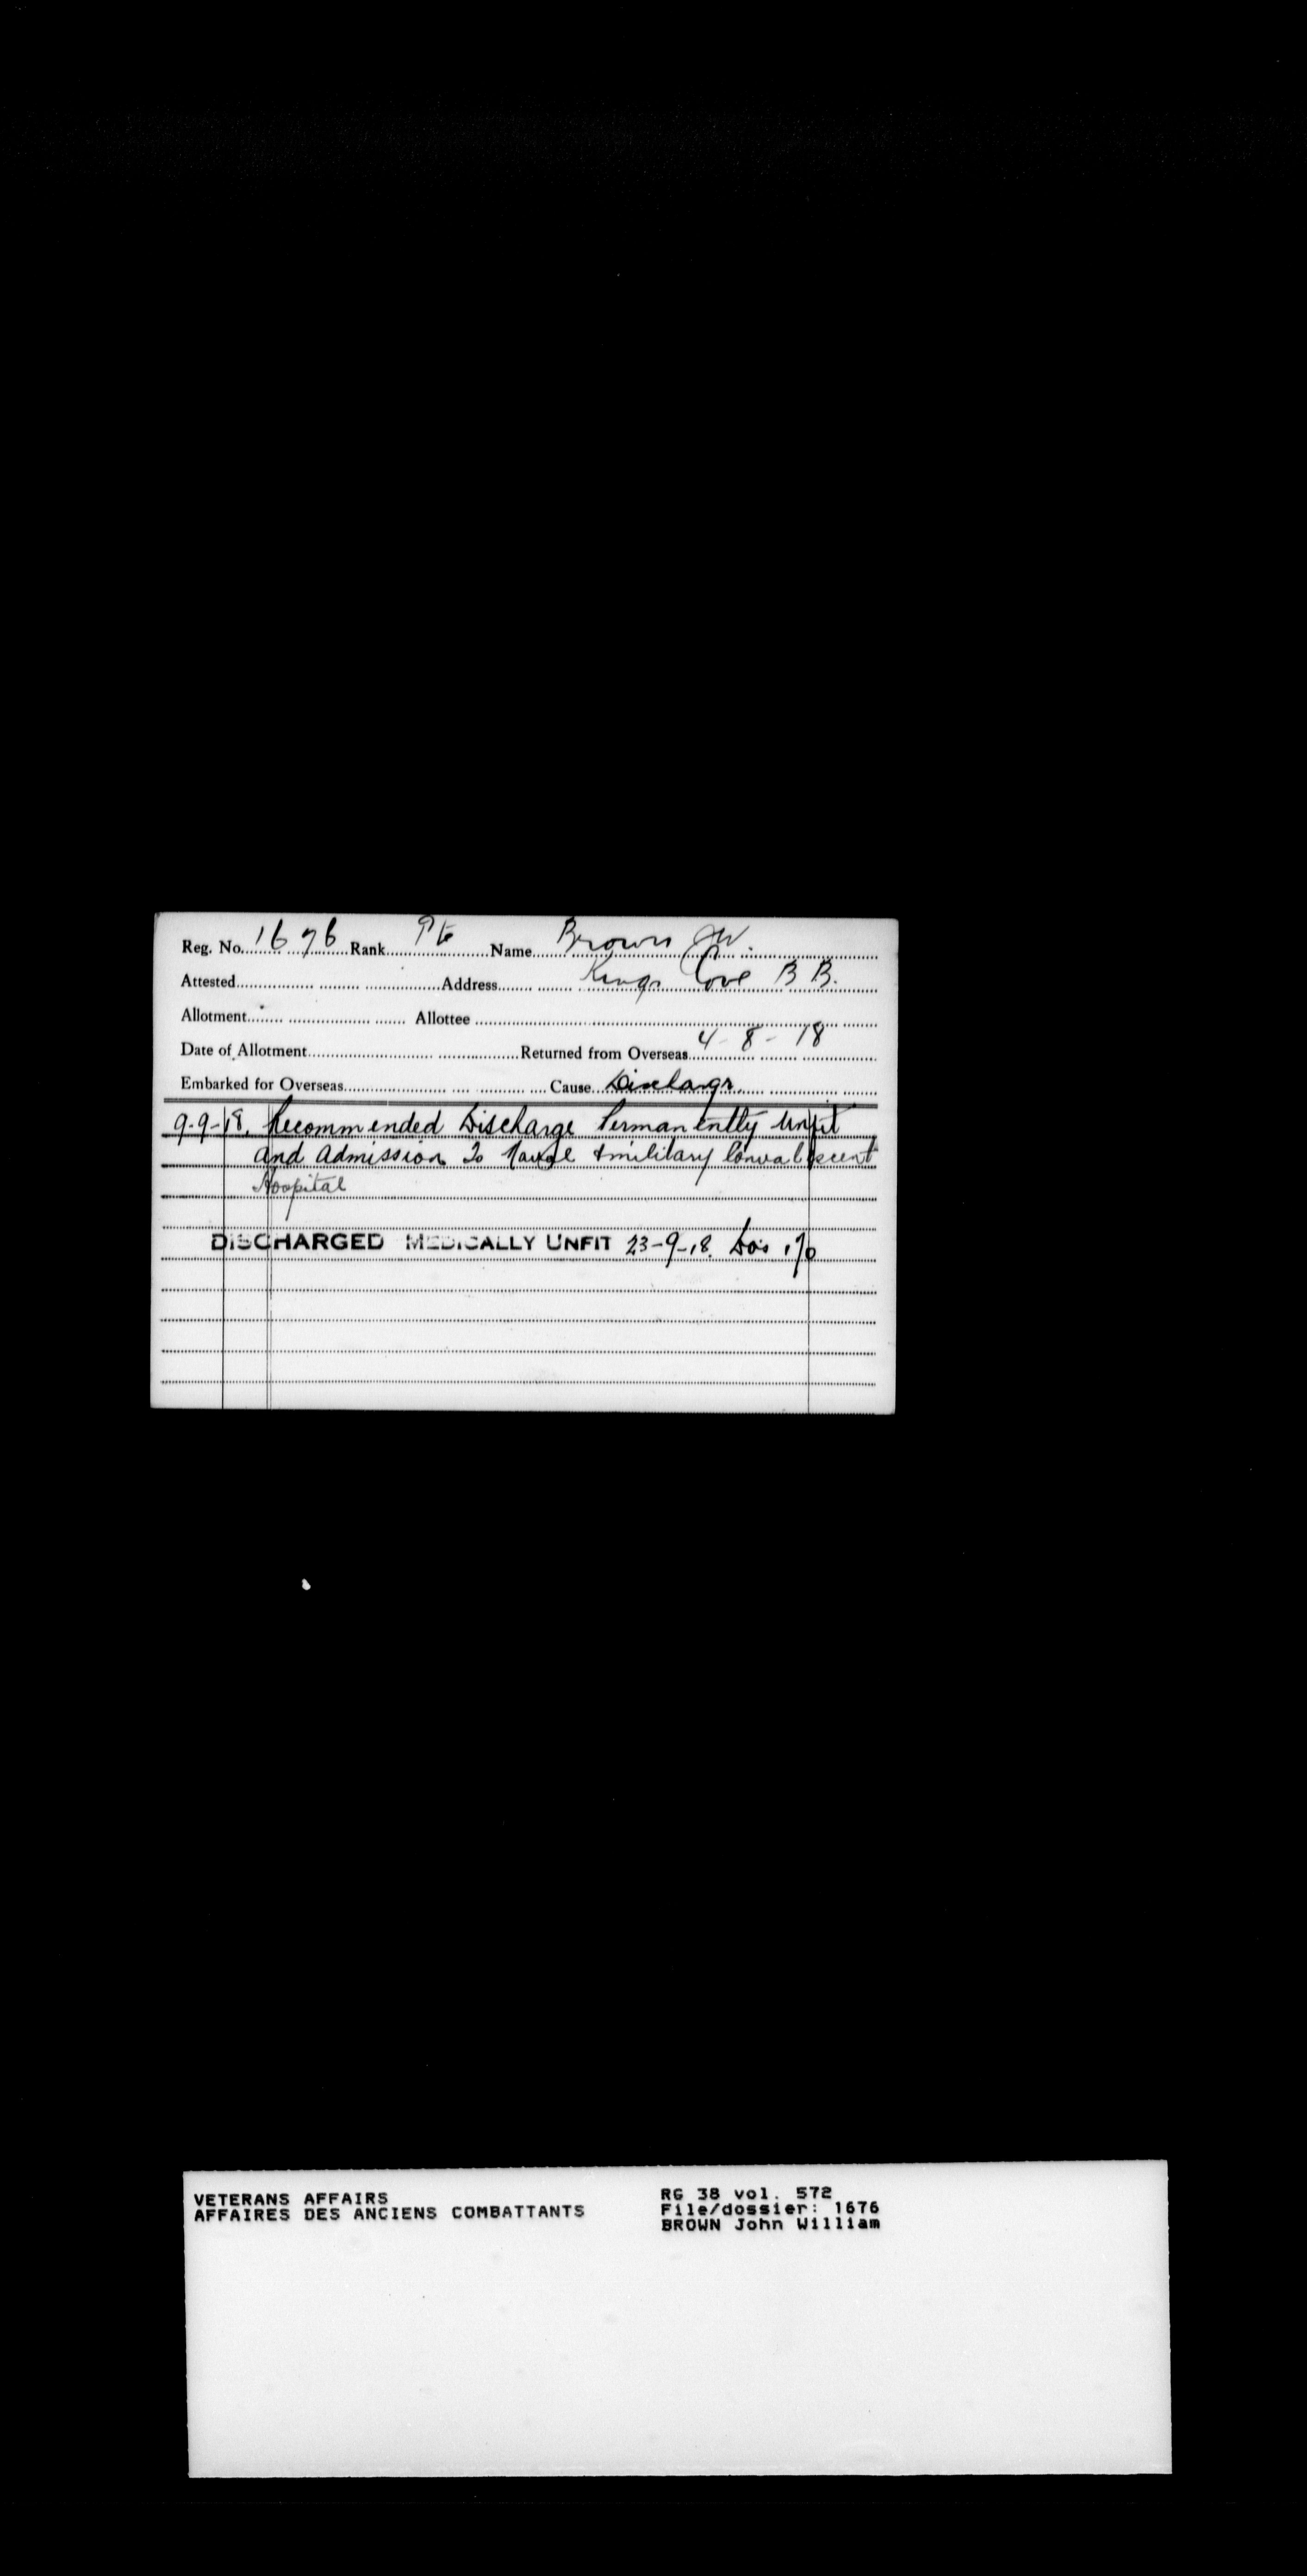 Reg. No. 1676 Rank Pte Name Brown J W.
Attested Address Kings Cove B B.
Allotment Allottee
Date of Allotment Returned from Overseas 4-8-18
Embarked for Overseas Cause Discharge
9-9-18. Recommended Discharge Permanently Unfit
and Admission to Naval & military Convalescent
Hospital
DISCHARGED MEDICALLY UNFIT 23-9-18.
VETERANS AFFAIRS
AFFAIRES DES ANCIENS COMBATTANTS
RG 38 vol. 572
File/dossier: 1676
BROWN John William